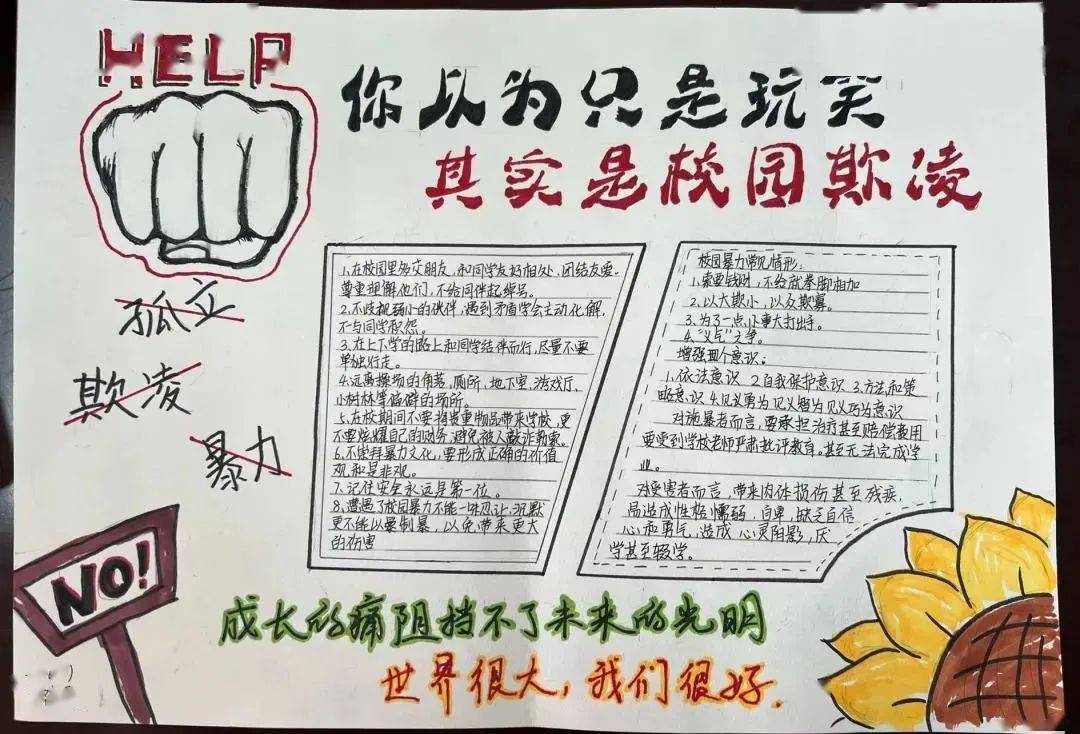 HELP
你以为只是玩笑
其实是校园欺凌
孤立
欺凌
暴力
1、在校园里多交朋友,和同学友好相处,团结友爱。
尊重理解他们,不给同伴起绰号。
2、不歧视弱小的伙伴,遇到矛盾学会主动化解,
不与同学积怨。
3、在上下学的路上和同学结伴而行,尽量不要
单独行走。
4、远离操场的角落、厕所、地下室、游戏厅、
小树林等偏僻的场所。
5、在校期间不要将贵重物品带来学校,更
不要炫耀自己的财务,避免被人敲诈勒索。
6、不崇拜暴力文化,要形成正确的价值
观和是非观。
7、记住安全永远是第一位。
8、遭遇了校园暴力不能一味忍让、沉默
更不能以暴制暴,以免带来更大
的伤害
校园暴力常见情形:
1、索要钱财,不给就拳脚相加
2、以大欺小,以众欺寡。
3、为了一点小事大打出手。
4、“义气”之争。
增强四个意识:
1、依法意识 2 自我保护意识 3、方法和策
略意识 4、见义勇为见义智为见义巧为意识
对施暴者而言,要承担治疗甚至赔偿费用
更要受到学校老师严肃批评教育。甚至无法完成学
业。
对受害者而言,带来肉体损伤甚至残疾,
易造成性格懦弱,自卑,缺乏自信
心和勇气,造成心灵阴影,厌
学甚至辍学。
NO!
成长的痛阻挡不了未来的光明
世界很大,我们很好.